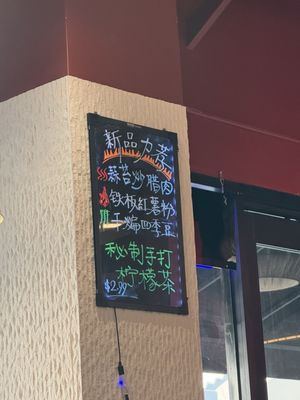 新品力荐
蒜苔炒腊肉
铁板红薯粉
干煸四季豆
秘制手打
柠檬茶
$2.99